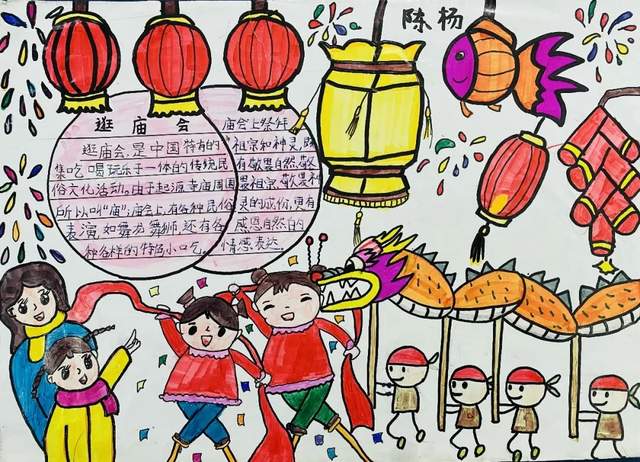 陈杨
逛庙会
逛庙会,是中国特有的
集吃喝玩乐于一体的传统民
俗文化活动,由于起源寺庙周围
所以叫"庙",庙会上,有各种民俗
表演,如舞龙舞狮,还有各
种各样的特色小吃。
庙会上祭拜
祖宗和神灵,既
有敬畏自然、敬
畏祖宗、敬畏神
灵的诚信,更有
感恩自然的
情感表达。